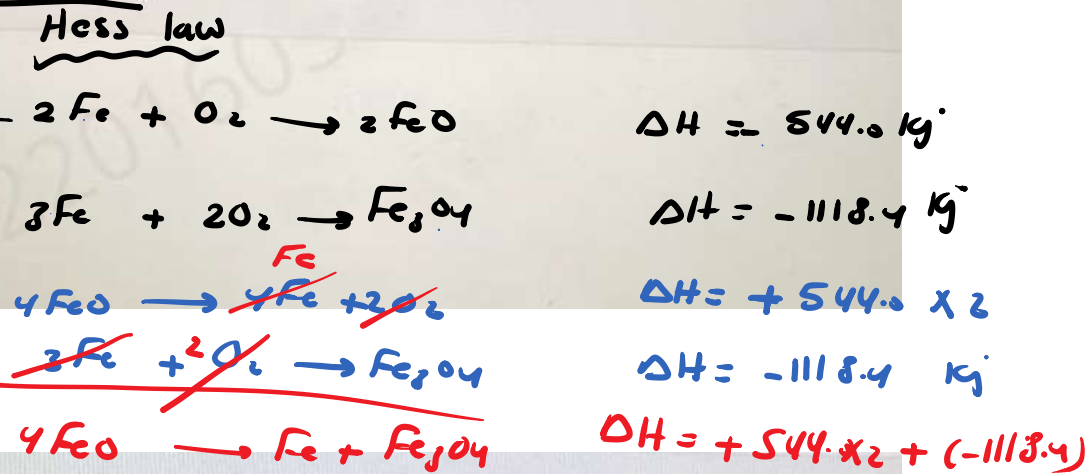 Hess law
- 2Fe + O2 → 2FeO ΔH = - 544.0 kj
3Fe + 2O2 → Fe3O4 ΔH = -1118.4 kj
Fe
4FeO → 4Fe + 2O2 ΔH = + 544.0 x 2
3Fe + 2O2 → Fe3O4 ΔH = -1118.4 kj
4FeO → Fe + Fe3O4 ΔH = + 544. x2 + (-1118.4)